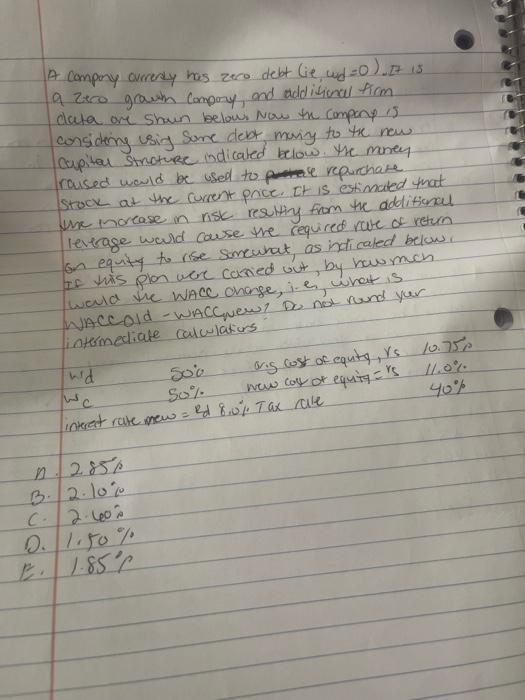 A company currently has zero debt (ie, wd=0). It is
a zero growth company, and additional firm
data are shown below. Now the company is
considering using some debt, moving to the new
capital structure indicated below. The money
raised would be used to repurchase
stock at the current price. It is estimated that
the increase in risk resulting from the additional
leverage would cause the required rate of return
on equity to rise somewhat, as indicated below.
If this plan were carried out, by how much
would the WACC change, i.e, what is
WACC old - WACC new? Do not round your
intermediate calculations
wd 50% orig cost of equity, rs 10.75%
wc 50% new cost of equity = rs 11.0%
interest rate new = rd 8.0% Tax rate 40%
A. 2.85%
B. 2.10%
C. 2.60%
D. 1.50%
E. 1.85%